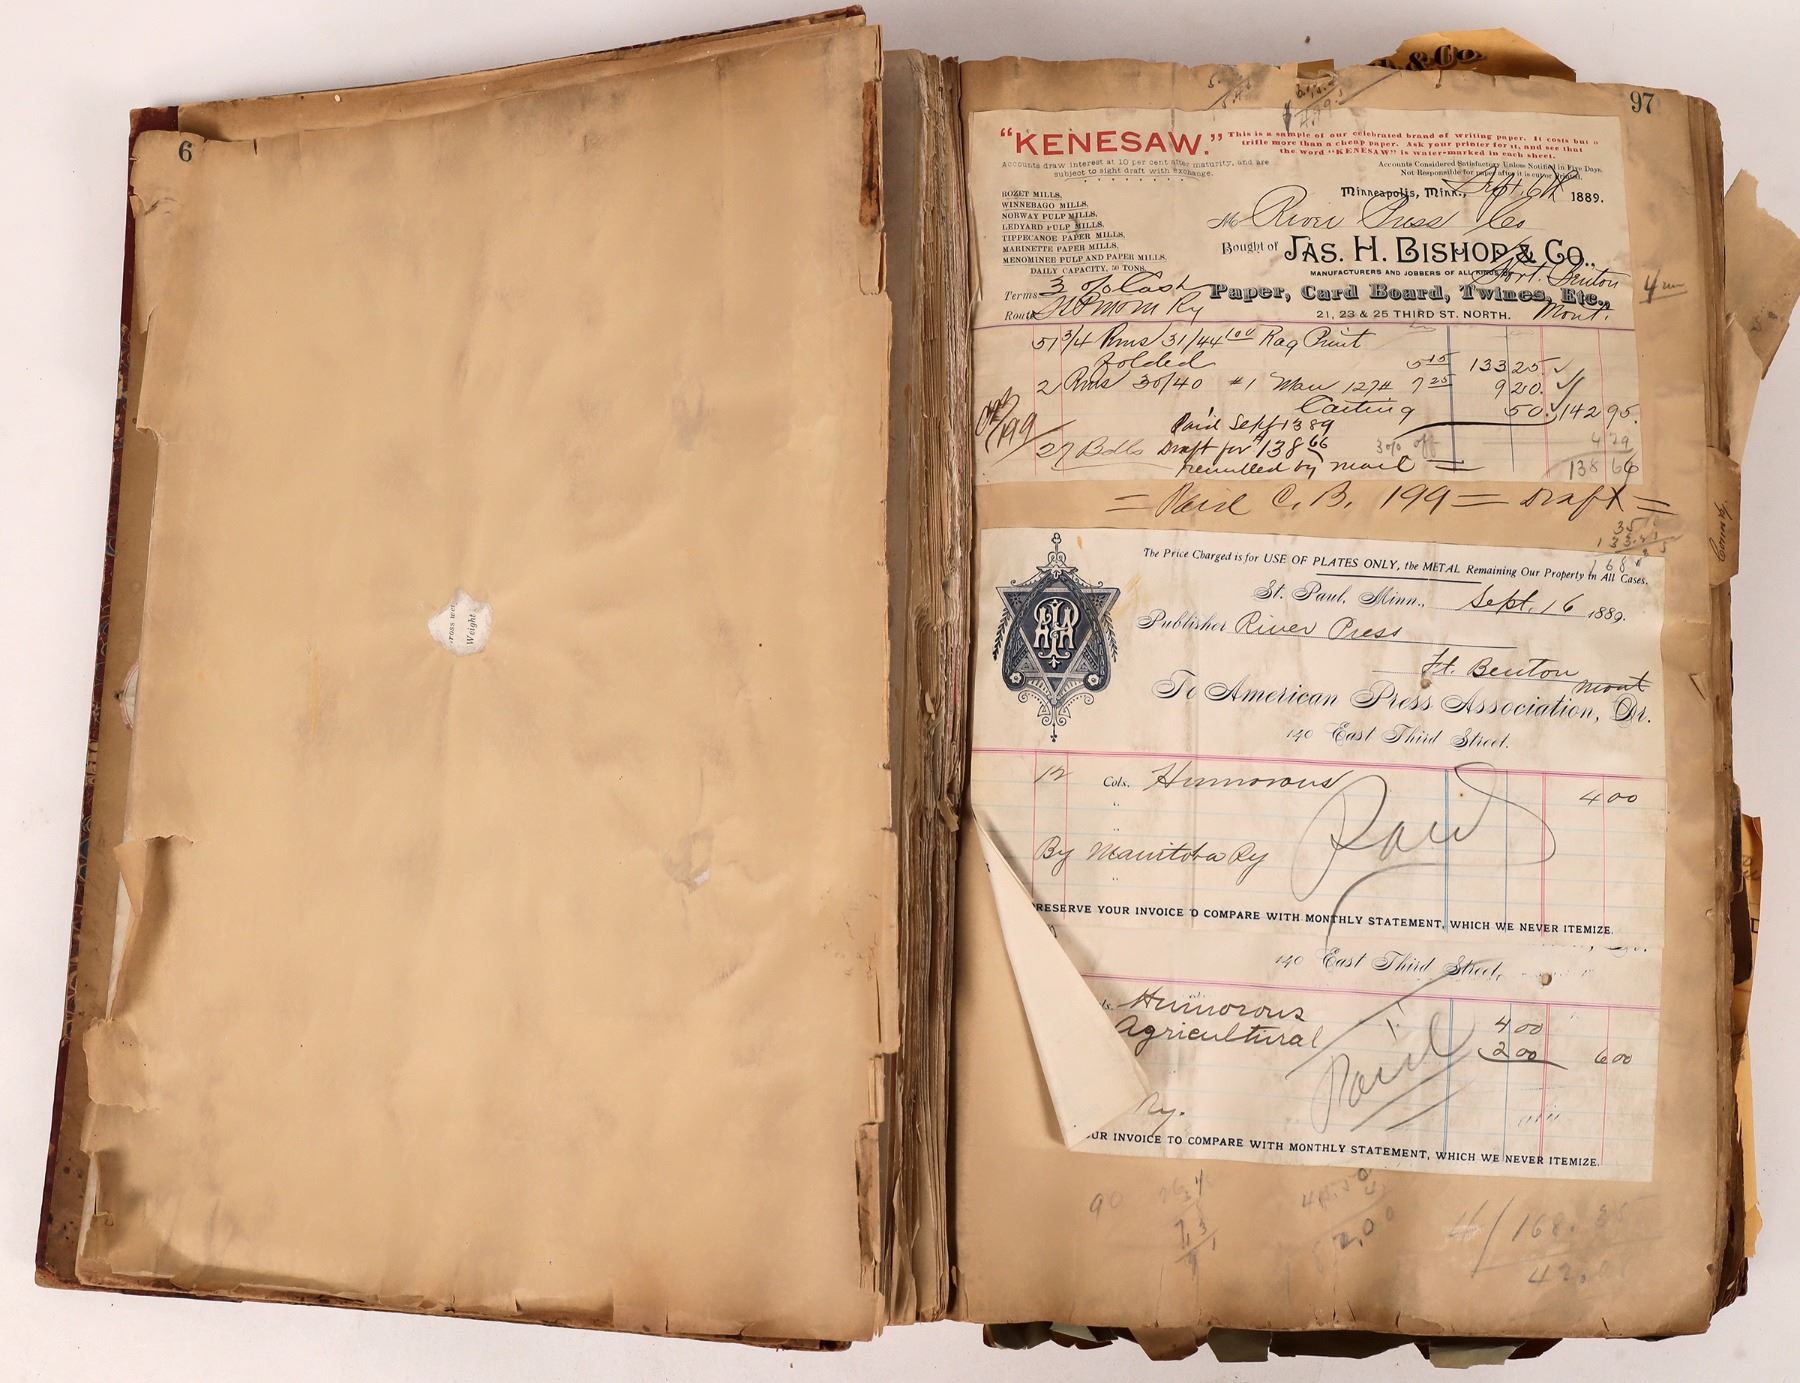 6
ross wei
Weight
& Co.
97
"KENESAW."
This is a sample of our celebrated brand of writing paper. It costs but a
trifle more than a cheap paper. Ask your printer for it, and see that
the word "KENESAW" is water-marked in each sheet.
Accounts draw interest at 10 per cent after maturity, and are
subject to sight draft with exchange.
Accounts Considered Satisfactory Unless Notified in Five Days.
Not Responsible for paper after it is cut or Printed.
ROZET MILLS,
WINNEBAGO MILLS,
NORWAY PULP MILLS,
LEDYARD PULP MILLS,
TIPPECANOE PAPER MILLS,
MARINETTE PAPER MILLS,
MENOMINEE PULP AND PAPER MILLS.
DAILY CAPACITY, 50 TONS.
Minneapolis, Minn., Sept. 6th 1889.
M River Press Co
Bought of JAS. H. BISHOP & CO.,
MANUFACTURERS AND JOBBERS OF ALL KINDS OF
Fort Benton
Terms 3 % Cash
Paper, Card Board, Twines, Etc.,
Route St P M & M Ry
21, 23 & 25 THIRD ST. NORTH. Mont.
51 3/4 Rms 31/44 100 Rag Print
folded 5 15 133 25
2 Rms 30/40 #1 Man 127# 7 25 9 20
Carting 50 142 95
Paid Sept 13 89
199
27 Bdls Draft for $138 66 3% off 4 29
remitted by mail 138 66
= Paid C. B. 199 = Draft =
The Price Charged is for USE OF PLATES ONLY, the METAL Remaining Our Property in All Cases.
St. Paul, Minn., Sept. 16 1889.
Publisher River Press
Ft. Benton Mont
To American Press Association, Dr.
140 East Third Street.
12 Cols. Humorous 4 00
"
By Manitoba Ry
"
Paid
PRESERVE YOUR INVOICE TO COMPARE WITH MONTHLY STATEMENT, WHICH WE NEVER ITEMIZE.
140 East Third Street,
ls. Humorous 4 00
Agricultural 2 00 6 00
Paid
Ry.
OUR INVOICE TO COMPARE WITH MONTHLY STATEMENT, WHICH WE NEVER ITEMIZE.
90